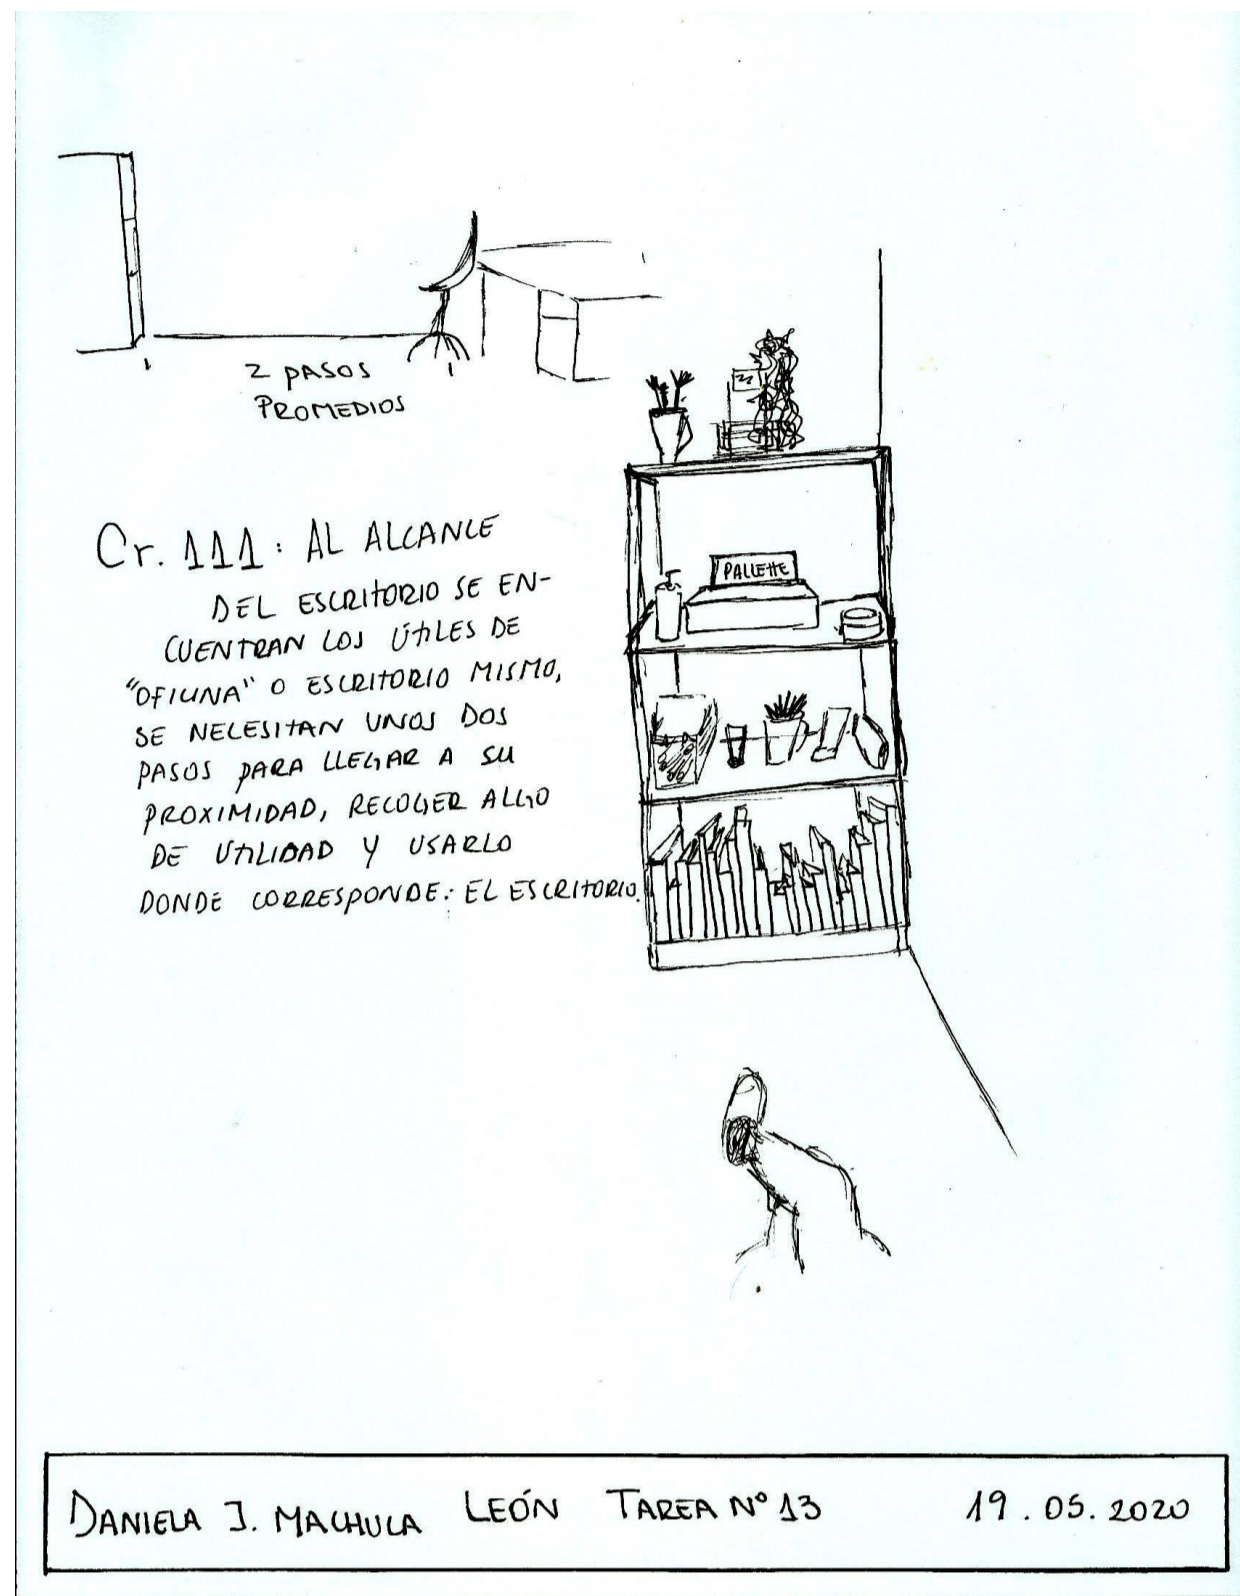 2 PASOS
PROMEDIOS
Cr. 111: AL ALCANCE
DEL ESCRITORIO SE EN-
CUENTRAN LOS ÚTILES DE
"OFICINA" O ESCRITORIO MISMO,
SE NECESITAN UNOS DOS
PASOS PARA LLEGAR A SU
PROXIMIDAD, RECOGER ALGO
DE UTILIDAD Y USARLO
DONDE CORRESPONDE: EL ESCRITORIO.
PALLETTE
DANIELA J. MACHUCA LEÓN TAREA Nº 13 19.05.2020